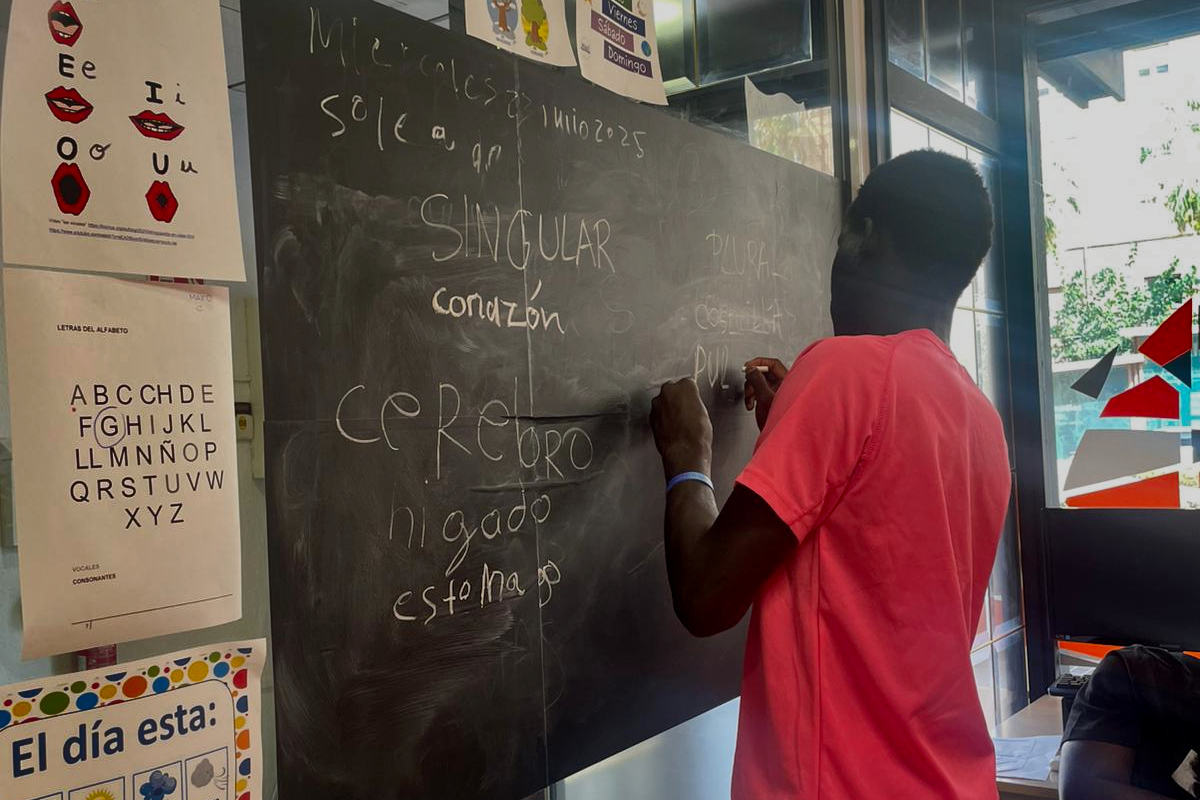 E e
I i
O o
U u
LETRAS DEL ALFABETO
A B C CH D E
F G H I J K L
LL M N Ñ O P
Q R S T U V W
X Y Z
VOCALES
CONSONANTES
El día esta:
Viernes
Sábado
Domingo
Miercoles 25 junio 2025
Solea
SINGULAR
PLURAL
corazón
CeRebRO
PUL
higado
estoMago